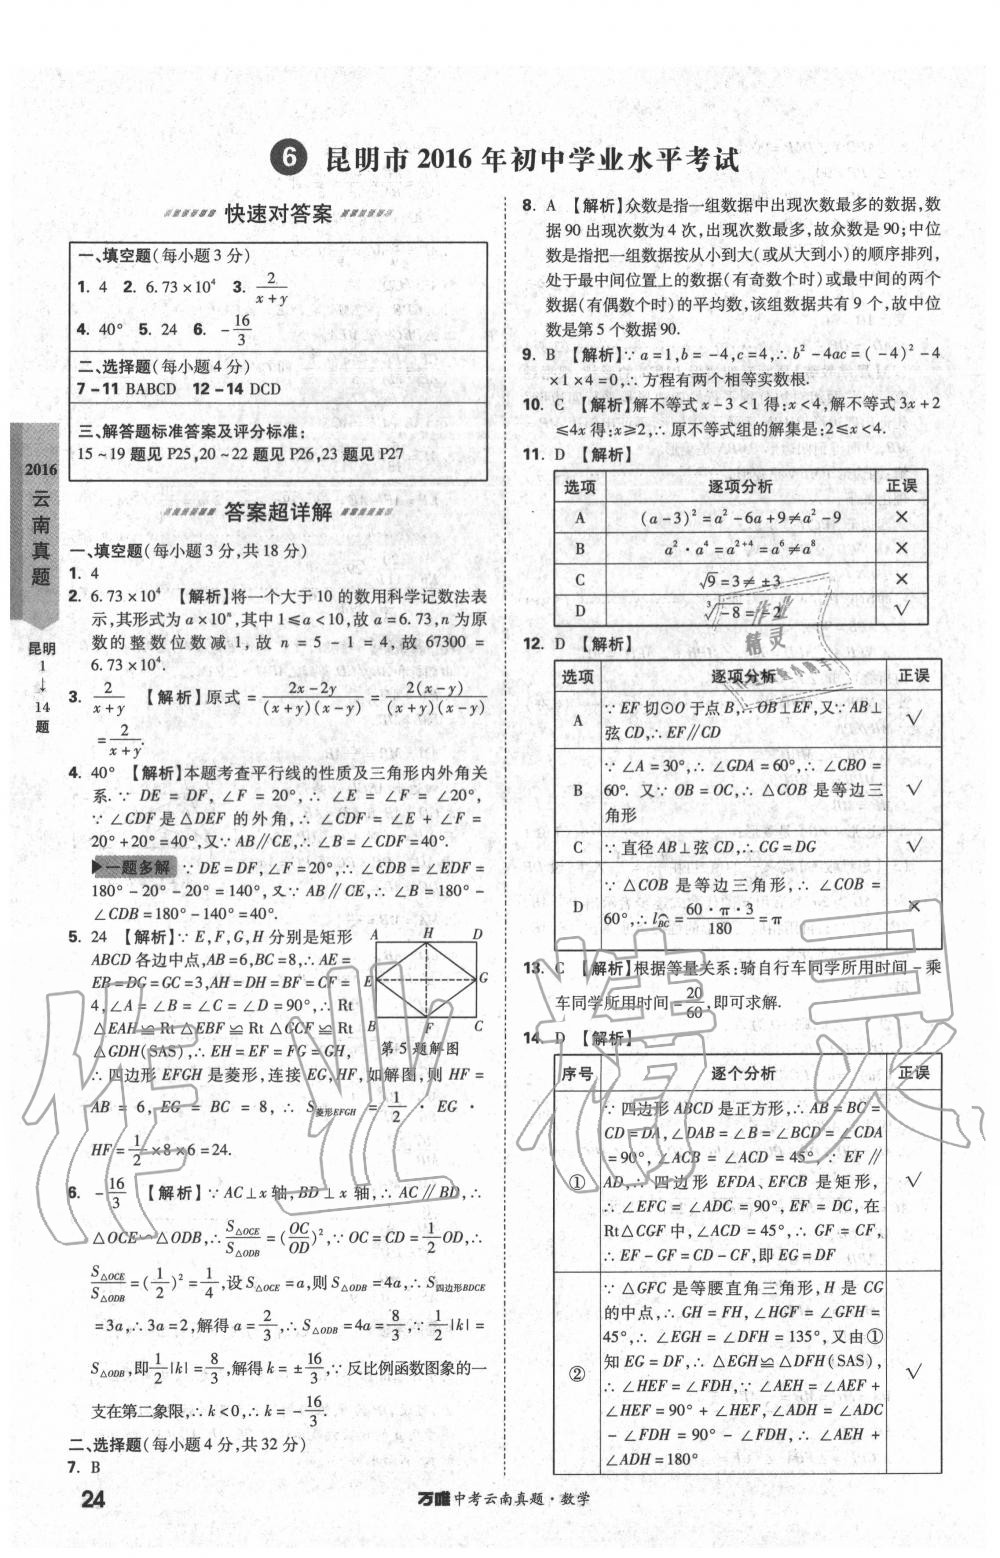 6 昆明市 2016 年初中学业水平考试
快速对答案
一、填空题(每小题 3 分)
1. 4 2. 6.73×10⁴ 3. 2/(x+y)
4. 40° 5. 24 6. -16/3
二、选择题(每小题 4 分)
7-11 BABCD 12-14 DCD
三、解答题标准答案及评分标准:
15~19 题见 P25,20~22 题见 P26,23 题见 P27
答案超详解
一、填空题(每小题 3 分,共 18 分)
1. 4
2. 6.73×10⁴ 【解析】将一个大于 10 的数用科学记数法表
示,其形式为 a×10ⁿ,其中 1≤a<10,故 a=6.73,n 为原
数的整数位数减 1,故 n=5-1=4,故 67300=
6.73×10⁴.
3. 2/(x+y) 【解析】原式=(2x-2y)/((x+y)(x-y))=2(x-y)/((x+y)(x-y))
=2/(x+y).
4. 40° 【解析】本题考查平行线的性质及三角形内外角关
系.∵DE=DF,∠F=20°,∴∠E=∠F=∠20°,
∵∠CDF 是△DEF 的外角,∴∠CDF=∠E+∠F=
20°+20°=40°,又∵AB∥CE,∴∠B=∠CDF=40°.
一题多解 ∵DE=DF,∠F=20°,∴∠CDB=∠EDF=
180°-20°-20°=140°,又∵AB∥CE,∴∠B=180°-
∠CDB=180°-140°=40°.
5. 24 【解析】∵E,F,G,H 分别是矩形
ABCD 各边中点,AB=6,BC=8,∴AE=
EB=DG=GC=3,AH=DH=BF=CF=
4,∠A=∠B=∠C=∠D=90°,∴Rt
△EAH≌Rt△EBF≌Rt△GCF≌Rt
△GDH(SAS),∴EH=EF=FG=GH,
A H D
E G
B F C
第 5 题解图
∴四边形 EFGH 是菱形,连接 EG,HF,如解图,则 HF=
AB=6,EG=BC=8,∴S菱形EFGH=1/2·EG·
HF=1/2×8×6=24.
6. -16/3 【解析】∵AC⊥x 轴,BD⊥x 轴,∴AC∥BD,∴
△OCE∽△ODB,∴S△OCE/S△ODB=(OC/OD)²,∵OC=CD=1/2OD,∴
S△OCE/S△ODB=(1/2)²=1/4,设 S△OCE=a,则 S△ODB=4a,∴S四边形BDCE
=3a,∴3a=2,解得 a=2/3,∴S△ODB=4a=8/3,∵1/2|k|=
S△ODB,即1/2|k|=8/3,解得 k=±16/3,∵反比例函数图象的一
支在第二象限,∴k<0,∴k=-16/3.
二、选择题(每小题 4 分,共 32 分)
7. B
8. A 【解析】众数是指一组数据中出现次数最多的数据,数
据 90 出现次数为 4 次,出现次数最多,故众数是 90;中位
数是指把一组数据按从小到大(或从大到小)的顺序排列,
处于最中间位置上的数据(有奇数个时)或最中间的两个
数据(有偶数个时)的平均数,该组数据共有 9 个,故中位
数是第 5 个数据 90.
9. B 【解析】∵a=1,b=-4,c=4,∴b²-4ac=(-4)²-4
×1×4=0,∴方程有两个相等实数根.
10. C 【解析】解不等式 x-3<1 得:x<4,解不等式 3x+2
≤4x 得:x≥2,∴原不等式组的解集是:2≤x<4.
11. D 【解析】
选项 逐项分析 正误
A (a-3)²=a²-6a+9≠a²-9 ×
B a²·a⁴=a²⁺⁴=a⁶≠a⁸ ×
C √9=3≠±3 ×
D ³√-8=-2 √
12. D 【解析】
选项 逐项分析 正误
A ∵EF 切⊙O 于点 B,∴OB⊥EF,又∵AB⊥
弦 CD,∴EF∥CD √
B ∵∠A=30°,∴∠GDA=60°,∴∠CBO=
60°. 又∵OB=OC,∴△COB 是等边三
角形 √
C ∵直径 AB⊥弦 CD,∴CG=DG √
D ∵△COB 是等边三角形,∴∠COB=
60°,∴l⌒BC=60·π·3/180=π ×
13. C 【解析】根据等量关系:骑自行车同学所用时间-乘
车同学所用时间=20/60,即可求解.
14. D 【解析】
序号 逐个分析 正误
① ∵四边形 ABCD 是正方形,∴AB=BC=
CD=DA,∠DAB=∠B=∠BCD=∠CDA
=90°,∠ACB=∠ACD=45°,∵EF∥
AD,∴四边形 EFDA、EFCB 是矩形,
∴∠EFC=∠ADC=90°,EF=DC,在
Rt△CGF 中,∠ACD=45°,∴GF=CF,
∴EF-GF=CD-CF,即 EG=DF √
② ∵△GFC 是等腰直角三角形,H 是 CG
的中点,∴GH=FH,∠HGF=∠GFH=
45°,∴∠EGH=∠DFH=135°,又由①
知 EG=DF,∴△EGH≌△DFH(SAS),
∴∠HEF=∠FDH,∵∠AEH=∠AEF+
∠HEF=90°+∠HEF,∠ADH=∠ADC
-∠FDH=90°-∠FDH,∴∠AEH+
∠ADH=180° √
2016
云南真题
昆明
1
↓
14
题
24
万唯中考云南真题·数学
作业精灵
作业
精灵